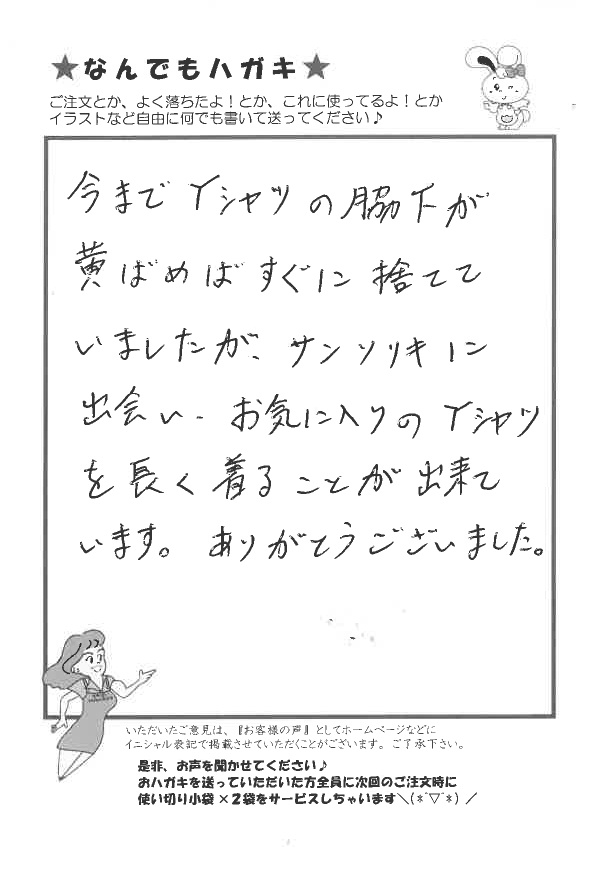 ★なんでもハガキ★
ご注文とか、よく落ちたよ！とか、これに使ってるよ！とか
イラストなど自由に何でも書いて送ってください♪
今までYシャツの脇下が
黄ばめばすぐに捨てて
いましたが、サンソリキに
出会い、お気に入りのYシャツ
を長く着ることが出来て
います。ありがとうございました。
いただいたご意見は、『お客様の声』としてホームページなどに
イニシャル表記で掲載させていただくことがございます。ご了承下さい。
是非、お声を聞かせてください♪
おハガキを送っていただいた方全員に次回のご注文時に
使い切り小袋×2袋をサービスしちゃいます＼(*ˆ▽ˆ*)／